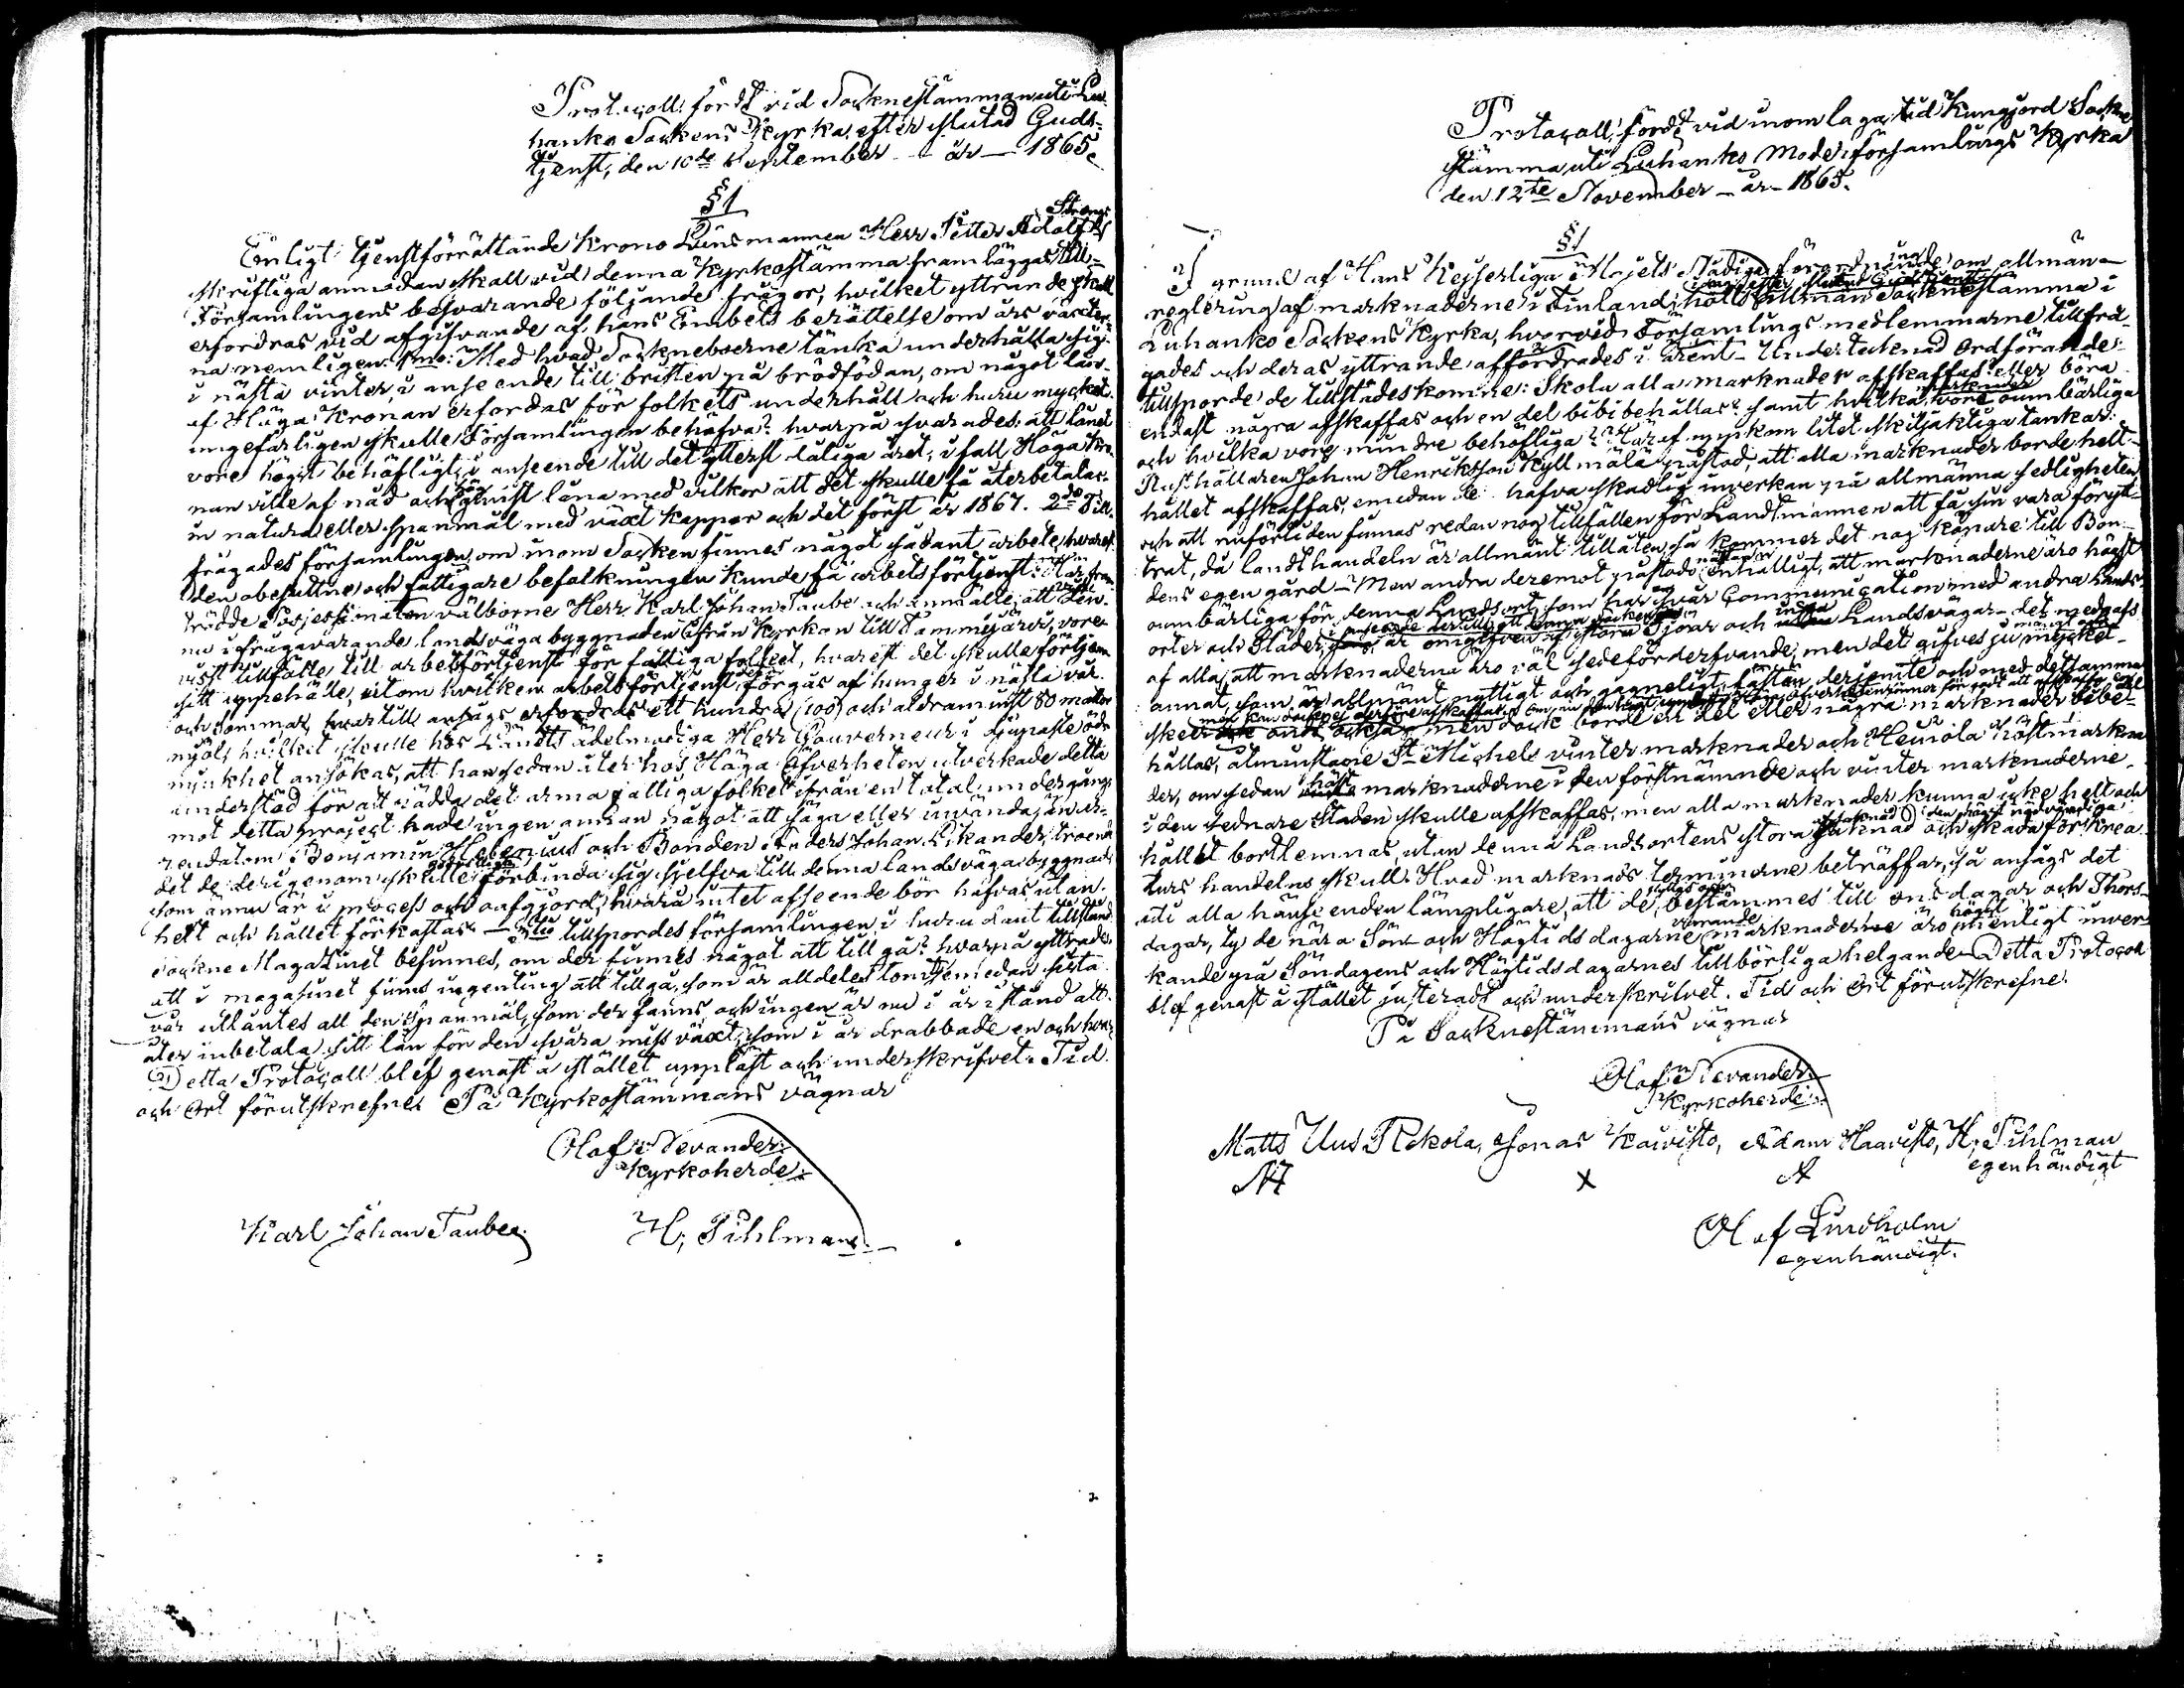 Protocoll, fördt vid Socknestämman uti Lu-
hanko Sockens Kyrka efter slutad Guds-
tjenst, den 10de September – år – 1865.
§ 1
Enligt tjenstförrättande Krono Länsmannen Herr Petter Adolf Strengs
skriftliga anmodan skall vid denna Kyrkostämma framläggas till
Församlingens besvarande följande frågor, hvilket yttrande skall
erfordras vid afgifvande af hans Embets berättelse om års växter-
na nemligen: 1mo: Med hvad Sockneboerne tänka underhålla sig
i nästa vinter, i anseende till bristen på brödfödan, om något lån
af Höga Kronan erfordas för folkets underhåll och huru mycket
ungefärligen skulle Församlingen behöfva? hvarpå svarades: att lånet
vore högst behöfligt, i anseende till det ytterst dåliga året, i fall Höga Kro-
nan ville af nåd och gunst låna med vilkor att det skulle få återbetalas
in natura eller spanmål med växt kappar och det först år 1867. 2do Till-
frågades församlingen, om inom Socken finnes något sådant arbete, hvarest
den obesuttne och fattigare befolkningen kunde få arbetsförtjenst? Här fram
trädde Possessionaten välborne Herr Karl Johan Taube och anmälte, att den
nu i frågavarande landsväga byggnaden ifrån Kyrkan till Tammijärvi, vore
visst tillfälle till arbetsförtjenst för fattiga folket, hvarest det skulle förtjena
sitt uppehälle, utom hvilken arbetsförtjenst det förgås af hunger i nästa vår
och sommar, hvartill ansågs erfordras ett hundra (100) och aldraminst 80 mattor
mjöl, hvilket skulle hos Landts ädelmodiga Herr Gouverneur i djupaste öd-
mjukhet ansökas, att han sedan åter hos Höga Öfverheten utverkade detta
understöd för att rädda det arma fattiga folket ifrån en total undergång
mot detta project hade ingen annan något att säga eller invända, än Ar-
rendatorn Benjamin Helenius och Bonden Anders Johan Likander, troende
det de derigenom skulle förbinda sig sjelfva till denna Landsväga byggnad
som ännu är i process och oafgjord, hvarå intet afseende bör hafvas, utan
helt och hållet förkastas – 3tio tillspordes församlingen, i huru dant tillstånd
Sockne Magasinet befinnes, om der finnes något att tillgå? hvarpå yttrades
att i magasinet finns ingenting att tillgå, som är alldeles tomt, emedan sista
vår utlåntes all den Spanmål, som der fanns, och ingen är nu i år i stånd att
åter inbetala sitt lån för den svåra missväxt, som i år drabbade en och hvar
Detta Protocoll blef genast å stället uppläst och underskrifvet. Tid
och Ort förutskrefne. På Kyrkostämmans vägnar
Olof Nevander
Kyrkoherde
Karl Johan Taube. H. Pihlman.
Protocoll, fördt vid inom laga tid Kungjord Sockne
stämma uti Luhanko Moderförsamlings Kyrka
den 12te November – år – 1865.
§ 1
I grund af Hans Kejserliga Majets Nådiga förordning om allmän
reglering af marknaderne i Finland, hölts i dag efter slutad Gudstjenst allmän Socknestämma i
Luhanko Sockens Kyrka, hvarvid Församlings medlemmarne tillfrå-
gades och deras yttrande affordrades i ärent – Undertecknad Ordförande
tillsporde de tillstädeskomne: Skola alla marknader afskaffas eller böra
endast några afskaffas och en del bibehållas? samt hvilka marknader vore oumbärliga
och hvilka vore mindre behöfliga? Häraf uppkom litet skiljaktiga tankar:
Rusthållaren Johan Henriksson Kyllmälä påstod, att alla marknader borde helt
hållet afskaffas, emedan de hafva skadlig inverkan på allmänna sedligheten
och att nuförtiden finnas redan nog tillfällen för Landtmannen att få sin vara föryt-
trat, då landthandeln är allmänt tillåten, så kommer det nog köpare till Bon-
dens egen gård – Men andra deremot påstodo enhälligt, att marknaderne äro högst
oumbärliga för denna Landsort, som har svår Communication med andra Lands-
orter och Städer, i anseende dertill att denna Socken är omgifven af stora Sjöar och inga Landsvägar – det medgafs
af alla, att marknaderna äro väl sedeförderfvande, men det gifves ju mångt och mycket
annat, som är allmänt nyttigt och gagneligt, fastän derjemte och med detsamma
sker men dock borde en del eller några marknader bibe-
hållas, åtminstone St Michels vintermarknader och Heinola höstmarkna
der, om sedan höst marknaderne i den förstnämnde och vinter marknaderne
i den sednare Staden skulle afskaffas, men alla marknader kunna icke helt och
hållet bortlemnas, utan denna Landsortens stora saknad och skada för krea-
turs handelns skull. Hvad marknads terminerne beträffar, så ansågs det
uti alla hänseenden lämpligare, att de bestämmes till onsdagar och Thors-
dagar, ty de nära Sön- och Högtidsdagarne varande marknaderne äro högst menligt inver-
kande på Söndagens och Högtidsdagarnes tillbörliga helgande – Detta Protocoll
blef genast å stället justeradt och underskrifvet. Tid och Ort förutskrefne.
På Socknestämmans vägnar
Olof Nevander
Kyrkoherde.
Matts Uus Rekola, Jonas Kawisto, Adam Haavisto, H. Pihlman
M X A egenhändigt
Olof Lindholm
egenhändigt.